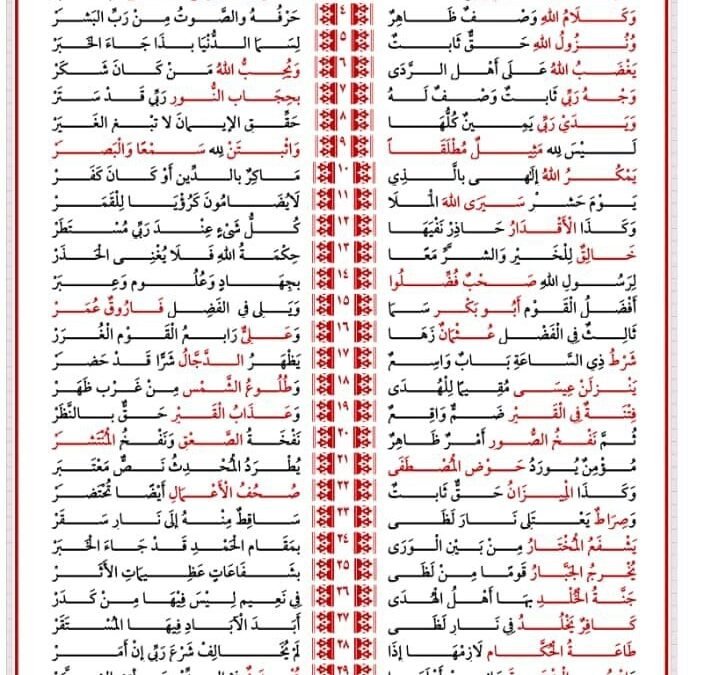 وَكَلَامُ اللهِ وَصْفٌ ظَاهِرٌ ٤ حَرْفُهُ والصَّوْتُ مِنْ رَبِّ البَشَرْ
وَنُزُولُ اللهِ حَقٌّ ثَابِتٌ ٥ لِسَمَا الدُّنْيَا بِذَا جَاءَ الخَبَرْ
يَغْضَبُ اللهُ عَلَى أَهْلِ الرَّدَى ٦ وَيُحِبُّ اللهُ مَنْ كَانَ شَكَرْ
وَجْهُ رَبِّي ثَابِتٌ وَصْفٌ لَهُ ٧ بِحِجَابِ النُّورِ رَبِّي قَدْ سَتَرْ
وَيَدَيْ رَبِّي يَمِينٌ كُلُّهَا ٨ حَقِّقِ الإيمانَ لا تبغِ الغَيَرْ
لَيْسَ لِلهِ مَثِيلٌ مُطْلَقَاً ٩ وَاثْبِتَنْ لِلهِ سَمْعًا وَالْبَصَرْ
يَمْكُرُ اللهُ إِلٰهِي بِالَّذِي ١٠ مَاكِرٌ بِالدِّينِ أَوْ كَانَ كَفَرْ
يَوْمَ حَشْرٍ سَيَرَى اللهَ الْمَلَا ١١ لَايُضَامُونَ كَرُؤْيَا لِلْقَمَرْ
وَكَذَا الْأَقْدَارُ حَاذِرْ نَفْيَهَا ١٢ كُلُّ شَيْءٍ عِنْدَ رَبِّي مُسْتَطَرْ
خَالِقٌ لِلْخَيْرِ وَالشرِّ مَعًا ١٣ حِكْمَةُ اللهِ فَلَا يُغْنِي الحَذَرْ
لِرَسُولِ اللهِ صَحْبٌ فُضِّلُوا ١٤ بِجِهَادٍ وَعُلُومٍ وَعِبَرْ
أَفْضَلُ الْقَوْمِ أَبُو بَكْرٍ سَمَا ١٥ وَيَلِي فِي الْفَضْلِ فَارُوقٌ عُمَرْ
ثَالِثٌ فِي الْفَضْلِ عُثْمَانٌ زَهَا ١٦ وَعَلِيٌّ رَابِعُ الْقَوْمِ الْغُرَرْ
شَرْطُ ذِي السَّاعَةِ بَابٌ وَاسِعٌ ١٧ يَظْهَرُ الدَّجَّالُ شَرًّا قَدْ حَضَرْ
يَنْزِلَنْ عِيسَى مُقِيمًا لِلْهُدَى ١٨ وَطُلُوعُ الشَّمْسِ مِنْ غَرْبٍ ظَهَرْ
فِتْنَةٌ فِي الْقَبْرِ ضَمٌّ وَاقِعٌ ١٩ وَعَذَابُ الْقَبْرِ حَقٌّ بِالنَّظَرْ
ثُمَّ نَفْخُ الصُّورِ أَمْرٌ ظَاهِرٌ ٢٠ نَفْخَةُ الصَّعْقِ وَنَفْخُ الْمُنْتَشَرْ
مُؤْمِنٌ يُورَدُ حَوْضَ الْمُصْطَفَى ٢١ يُطْرَدُ الْمُحْدِثُ نَصٌّ مُعْتَبَرْ
وَكَذَا الْمِيزَانُ حَقٌّ ثَابِتٌ ٢٢ صُحُفُ الْأَعْمَالِ أَيْضًا تُحْتَضَرْ
وَصِرَاطٌ يَعْتَلِي نَارَ لَظَى ٢٣ سَاقِطٌ مِنْهُ إِلَى نَارِ سَقَرْ
يَشْفَعُ الْمُخْتَارُ مِنْ بَيْنِ الْوَرَى ٢٤ بِمَقَامِ الْحَمْدِ قَدْ جَاءَ الْخَبَرْ
يُخْرِجُ الْجَبَّارُ قَومًا مِنْ لَظَى ٢٥ بِشَفَاعَاتٍ عَظِيمَاتِ الأَثَرْ
جَنَّةُ الْخُلْدِ بِهَا أَهْلُ الْهُدَى ٢٦ فِي نَعِيمٍ لَيْسَ فِيهَا مِنْ كَدَرْ
كَافِرٌ يَخْلُدُ فِي نَارِ لَظَى ٢٧ أَبَدَ الْآبَادِ فِيهَا الْمُسْتَقَرْ
طَاعَةُ الْحُكَّامِ لَازِمْهَا إِذَا ٢٨ لَمْ يُخَالِفْ شَرْعَ رَبِّي إِنْ أَمَرْ
٢٩